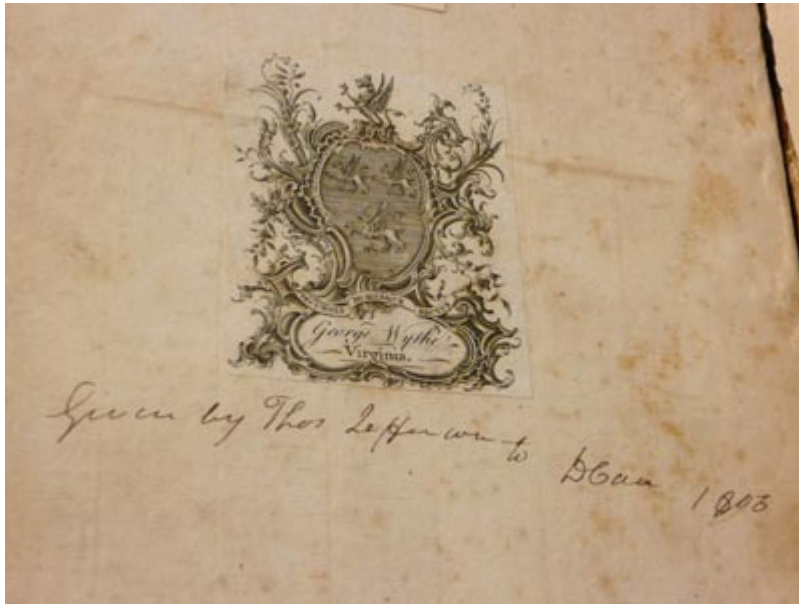 George Wythe
Virginia.
Given by Thos Jefferson to D Carr 1806